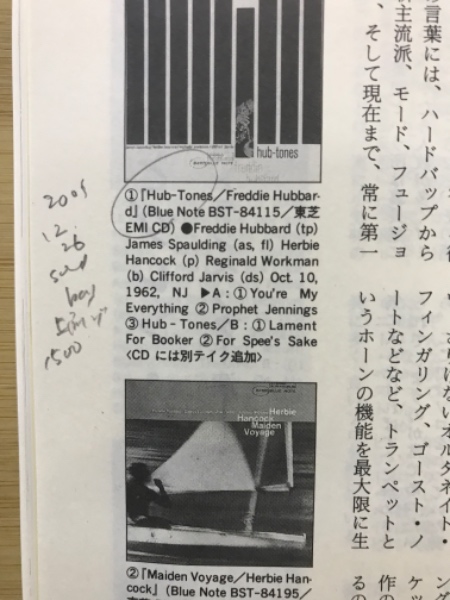 の言葉には、ハードバップから
新主流派、モード、フュージョ
、そして現在まで、常に第一
フィンガリング、ゴースト・ノ
ートなどなど、トランペットと
いうホーンの機能を最大限に生
hub-tones
①『Hub-Tones/Freddie Hubbar-
d』(Blue Note BST-84115/東芝
EMI CD) ●Freddie Hubbard (tp)
James Spaulding (as, fl) Herbie
Hancock (p) Reginald Workman
(b) Clifford Jarvis (ds) Oct. 10,
1962, NJ ▶A:①You're My
Everything ②Prophet Jennings
③Hub-Tones/B:①Lament
For Booker ②For Spee's Sake
〈CDには別テイク追加〉
2005
12.
26
1500
Herbie
Hancock
Maiden
Voyage
②『Maiden Voyage/Herbie Han-
cock』(Blue Note BST-84195/